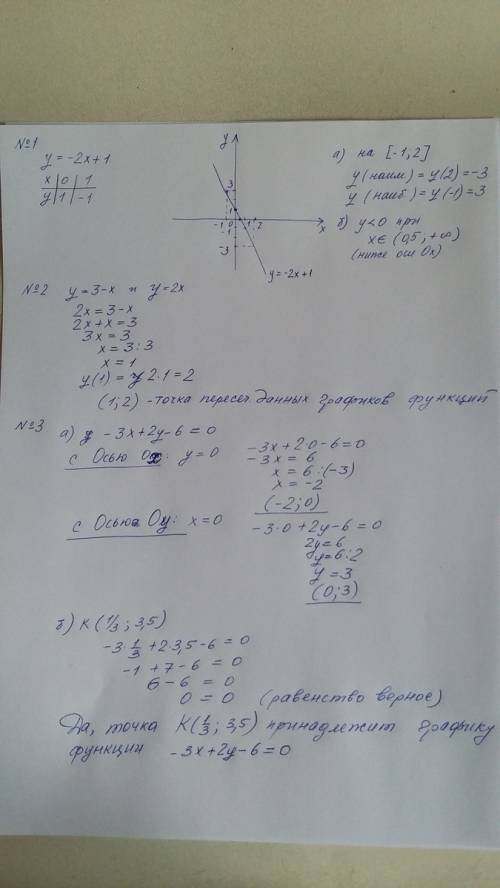 №1
y = -2x+1
x | 0 | 1
y | 1 | -1
y
3
1
-1 0 1 2 x
-1
-3
y = -2x+1
а) на [-1,2]
y (наим) = y(2) = -3
y (наиб) = y(-1) = 3
б) y<0 при
x∈ (0,5; +∞)
(ниже оси Ox)
№2 y = 3-x и y = 2x
2x = 3-x
2x+x = 3
3x = 3
x = 3:3
x = 1
y(1) = 2·1 = 2
(1,2) - точка пересеч данных графиков функций
№3 а) -3x+2y-6 = 0
с Осью Ox: y=0
-3x+2·0-6=0
-3x = 6
x = 6:(-3)
x = -2
(-2;0)
с Осью Oy: x=0
-3·0+2y-6=0
2y=6
y=6:2
y=3
(0;3)
б) K(1/3; 3,5)
-3·1/3+2·3,5-6=0
-1+7-6=0
6-6=0
0=0 (равенство верное)
Да, точка K(1/3; 3,5) принадлежит графику
функции -3x+2y-6=0